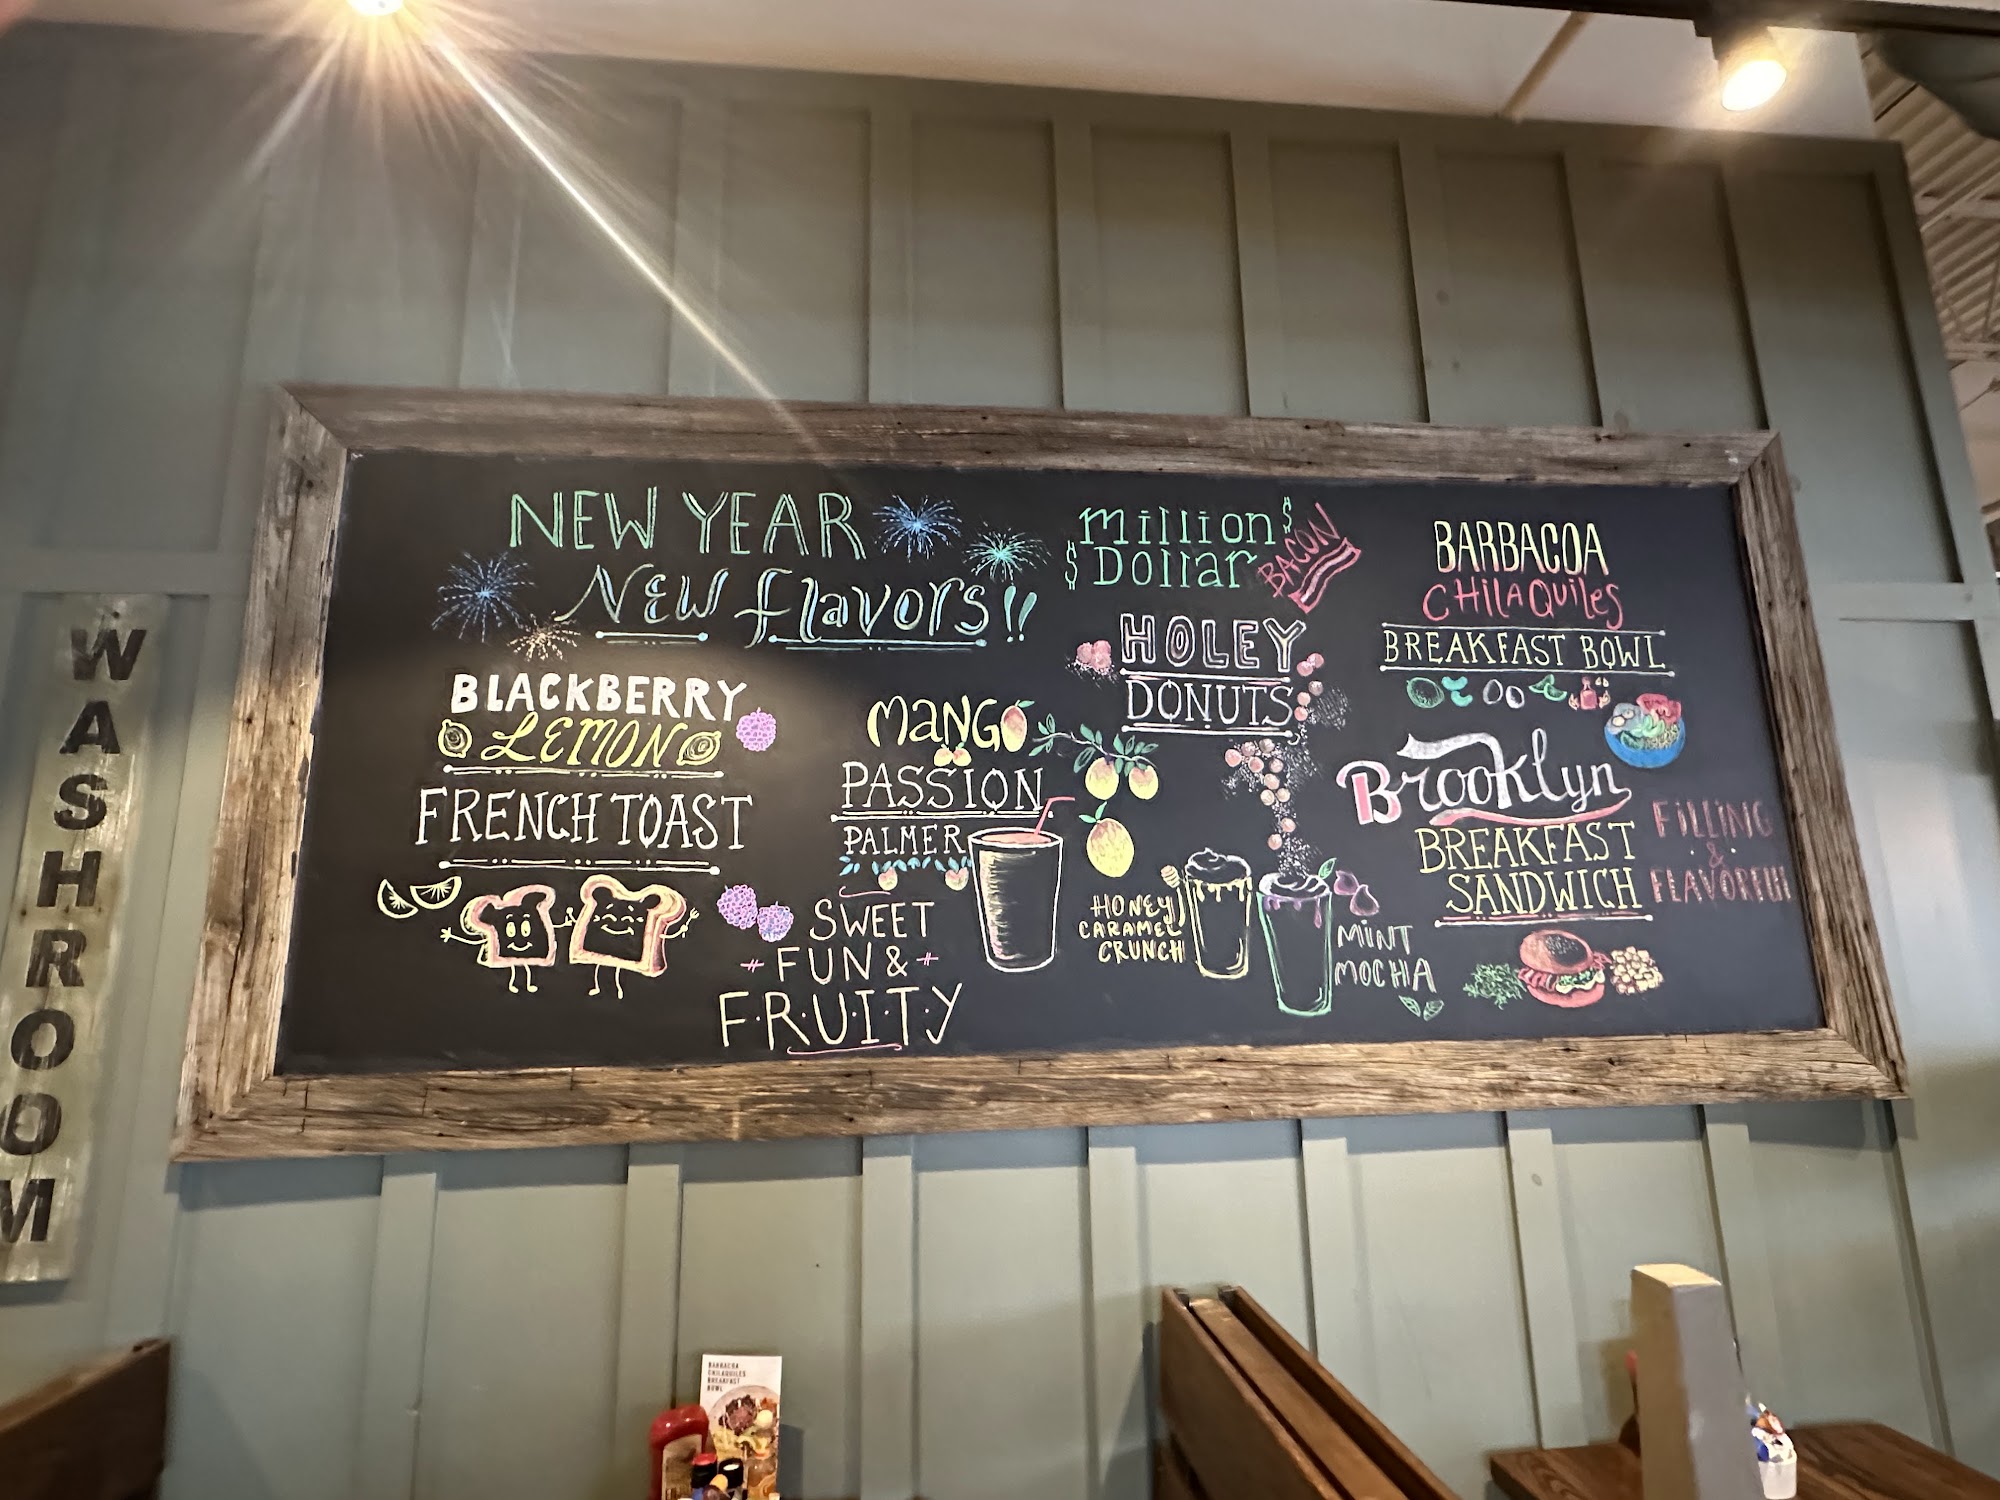 WASHROOM
NEW YEAR
NEW flavors!!
BLACKBERRY
LEMON
FRENCH TOAST
MANGO
PASSION
PALMER
SWEET
FUN &
F·R·U·I·T·Y
Million $
$ Dollar
BACON
HOLEY
DONUTS
HONEY
CARAMEL
CRUNCH
MINT
MOCHA
BARBACOA
CHILAQUILES
BREAKFAST BOWL
Brooklyn
BREAKFAST
SANDWICH
FILLING
&
FLAVORFUL
BARBACOA
CHILAQUILES
BREAKFAST
BOWL